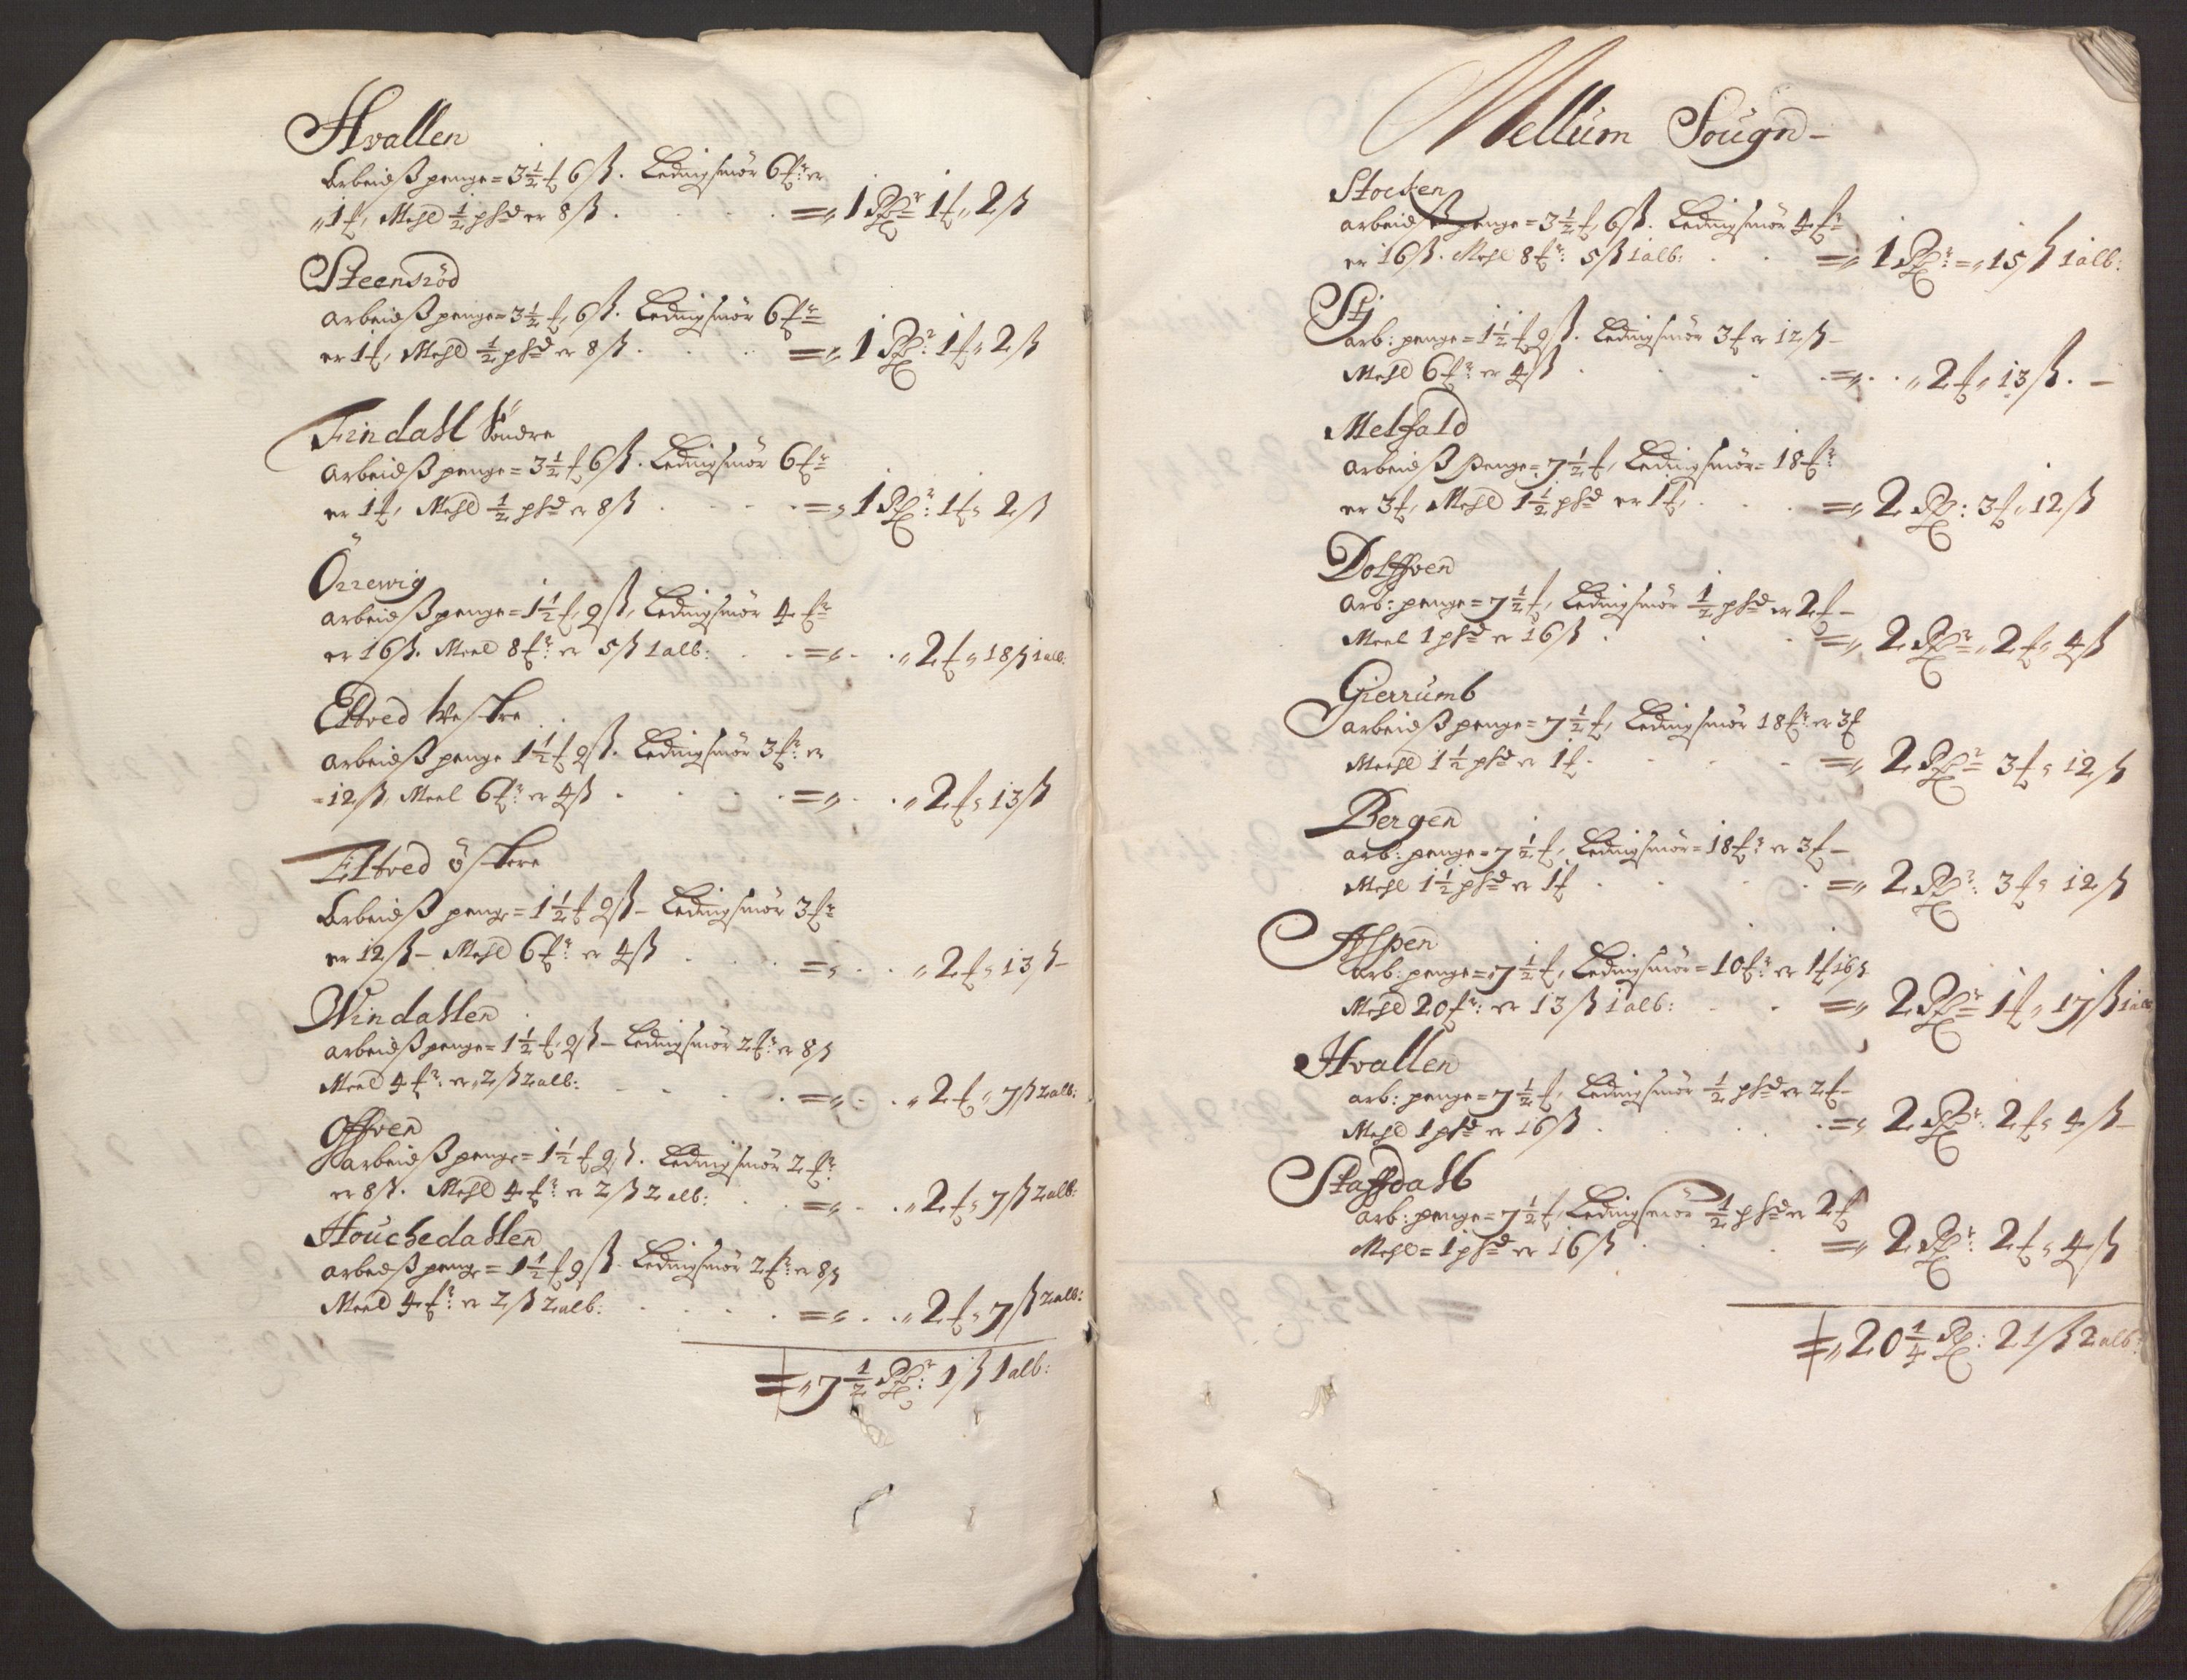 Hvallen
Arbeidß penge = 3½ ƭ 6 ß. Ledingsmør 6 ƭr: er
1 ƭ, Mehl ½ phd er 8 ß . . . =„ 1 Rdr 1 ƭ „ 2 ß
Steensröd
arbeidß penge = 3½ ƭ, 6 ß. Ledingsmør 6 ƭr:
er 1 ƭ, Mehl ½ phd er 8 ß . . . =„ 1 Rdr: 1 ƭ „ 2 ß
Findahl Söndre
arbeidß penge = 3½ ƭ 6 ß. Ledingsmør 6 ƭr:
er 1 ƭ, Mehl ½ phd er 8 ß . . . =„ 1 Rdr: 1 ƭ „ 2 ß
Örrewig
arbeidß penge = 1½ ƭ, 9 ß, Ledingsmør 4 ƭr:
er 16 ß. Meel 8 ƭr: er 5 ß 1 alb: . . =„ . . „ 2 ƭ „ 18 ß 1 alb:
Eltved Westre
arbeidß penge 1½ ƭ 9 ß. Ledingsmør 3 ƭr: er
= 12 ß, Meel 6 ƭr: er 4 ß . . . =„ . . „ 2 ƭ „ 13 ß
Eltved östere
Arbeidß penge = 1½ ƭ 9 ß – Ledingsmør 3 ƭr:
er 12 ß – Mehl 6 ƭr: er 4 ß . . . =„ . . „ 2 ƭ „ 13 ß –
Windahlen
arbeidß penge = 1½ ƭ, 9 ß – Ledingsmør 2 ƭr: er 8 ß
Meel 4 ƭr: er „ 2 ß 2 alb: . . . =„ . . „ 2 ƭ „ 7 ß 2 alb:
Offven
arbeidß penge = 1½ ƭ 9 ß. Ledingsmør 2 ƭr:
er 8 ß. Mehl 4 ƭr: er 2 ß 2 alb: . . =„ . . „ 2 ƭ „ 7 ß 2 alb:
Houchedahlen
arbeidß penge = 1½ ƭ 9 ß. Ledingsmør 2 ƭr: er 8 ß
Meel 4 ƭr: er 2 ß 2 alb: . . . =„ . . „ 2 ƭ „ 7 ß 2 alb:
=„ 7½ Rdr: 1 ß 1 alb:
Mellum Sougn –
Stocken
arbeidß penge = 3½ ƭ, 6 ß. Ledingsmør 4 ƭr:
er 16 ß. Mehl 8 ƭr: 5 ß 1 alb: . . =„ 1 Rdr: =„ 15 ß 1 alb:
Stj
arb: penge = 1½ ƭ 9 ß. Ledingsmør 3 ƭ er 12 ß –
Mehl 6 ƭr: er 4 ß . . . =„ . . „ 2 ƭ „ 13 ß. –
Melfald
arbeidß Penge = 7½ ƭ, Ledingsmør = 18 ƭr:
er 3 ƭ, Mehl 1½ phd er 1 ƭ, . . . =„ 2 Rd: 3 ƭ „ 12 ß
Dolffven
Arb: penge = 7½ ƭ, Ledingsmør ½ phd er 2 ƭ –
Meel 1 phd er 16 ß . . . =„ 2 Rdr: „ 2 ƭ „ 4 ß
Gierrumb
arbeidß penge = 7½ ƭ, Ledingsmør 18 ƭr: er 3 ƭ
Meehl 1½ phd er 1 ƭ . . . =„ 2 Rdr: 3 ƭ „ 12 ß
Bergen
arb: penge = 7½ ƭ, Ledingsmør = 18 ƭr: er 3 ƭ –
Mehl 1½ phd er 1 ƭ . . . =„ 2 Rdr: 3 ƭ „ 12 ß
Aspen
arb: penge = 7½ ƭ, Ledingsmør = 10 ƭr: er 1 ƭ 16 ß
Mehl 20 ƭr: er 13 ß 1 alb: . . =„ 2 Rdr: 1 ƭ „ 17 ß 1 alb
Hvallen
arb: penge = 7½ ƭ, Ledingsmør ½ phd er 2 ƭ –
Mehl 1 phd er 16 ß . . . =„ 2 Rdr: 2 ƭ „ 4 ß –
Staffdahl
arb: penge = 7½ ƭ, Ledingsmør ½ phd er 2 ƭ
Mehl = 1 phd er 16 ß . . . =„ 2 Rdr: 2 ƭ „ 4 ß
=„ 20¼ Rd: 21 ß 2 alb: